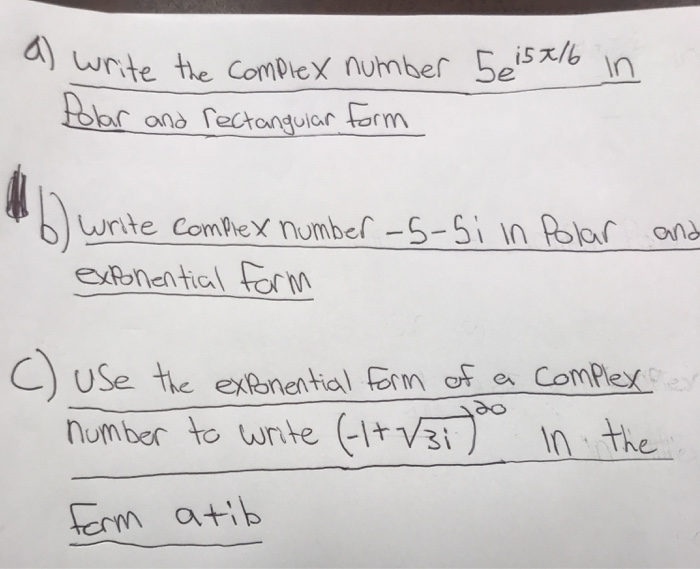 a) write the complex number 5e^i5π/6 in
Polar and rectangular form
b) write complex number -5-5i in Polar and
exponential form
C) Use the exponential form of a complex
number to write (-1+√3i)^20 in the
form a+ib